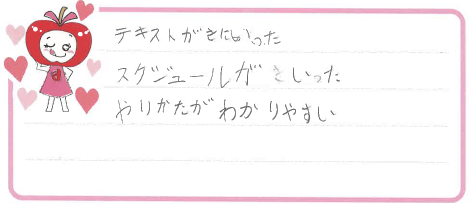 テキストがきにいった
スケジュールが きいった
やりかたが わかりやすい